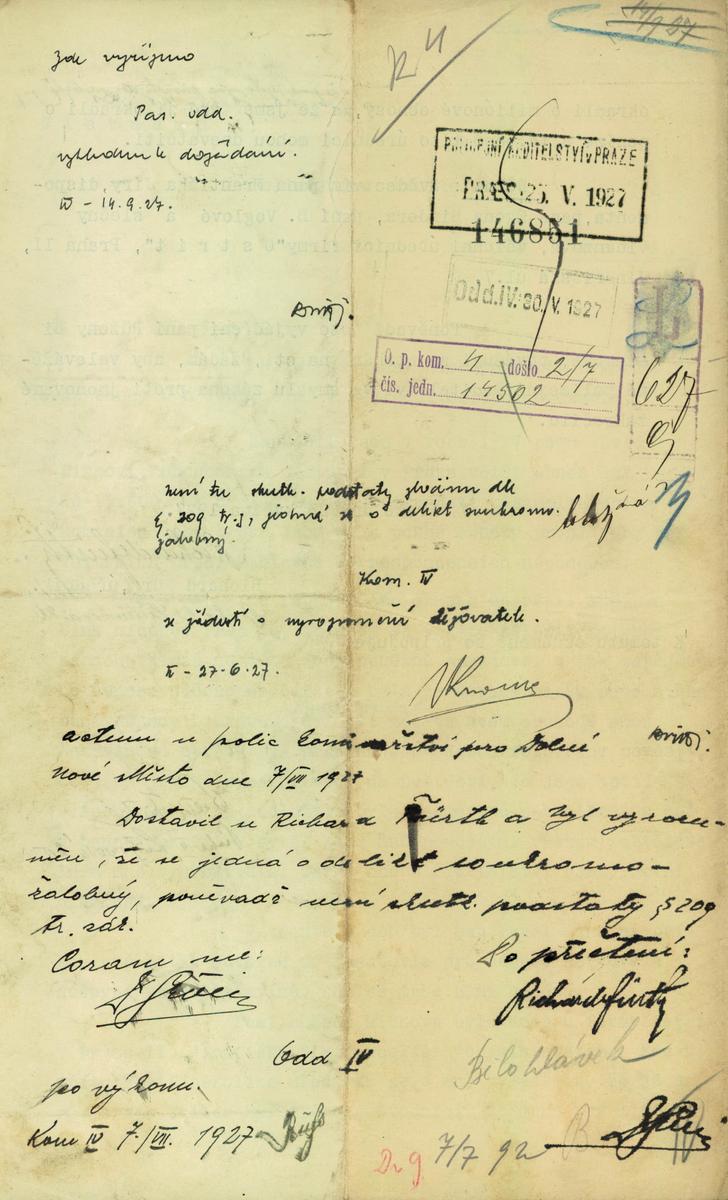 14/9 27
Zde vyřízeno
Pas. odd.
vzhledem k dožádání.
IV - 14.9.27.
POLICEJNÍ ŘEDITELSTVÍ v PRAZE
PRAES. 25. V. 1927
146851
Odd. IV. 30. V. 1927
O. p. kom. 4 došlo 2/7
čís. jedn. 14502
627
9
není tu skutk. podstaty zločinu dle
§ 209 tr. z., jedná se o delikt soukromo-
žalobný.
Kom. IV
se žádostí o vyrozumění stěžovatele.
II - 27.6.27.
actum u polic komisařství pro Dolní
Nové Město dne 7/VII 1927
Dostavil se Richard Fürth a byl vyrozu-
měn, že se jedná o delikt soukromo-
žalobný, poněvadž není skutk. podstaty § 209
tr. zák.
Coram me:
Po přečtení:
Richard Fürth
Odd IV
Bělohlávek
po výkonu.
Kom IV 7./VII. 1927
7/7 92